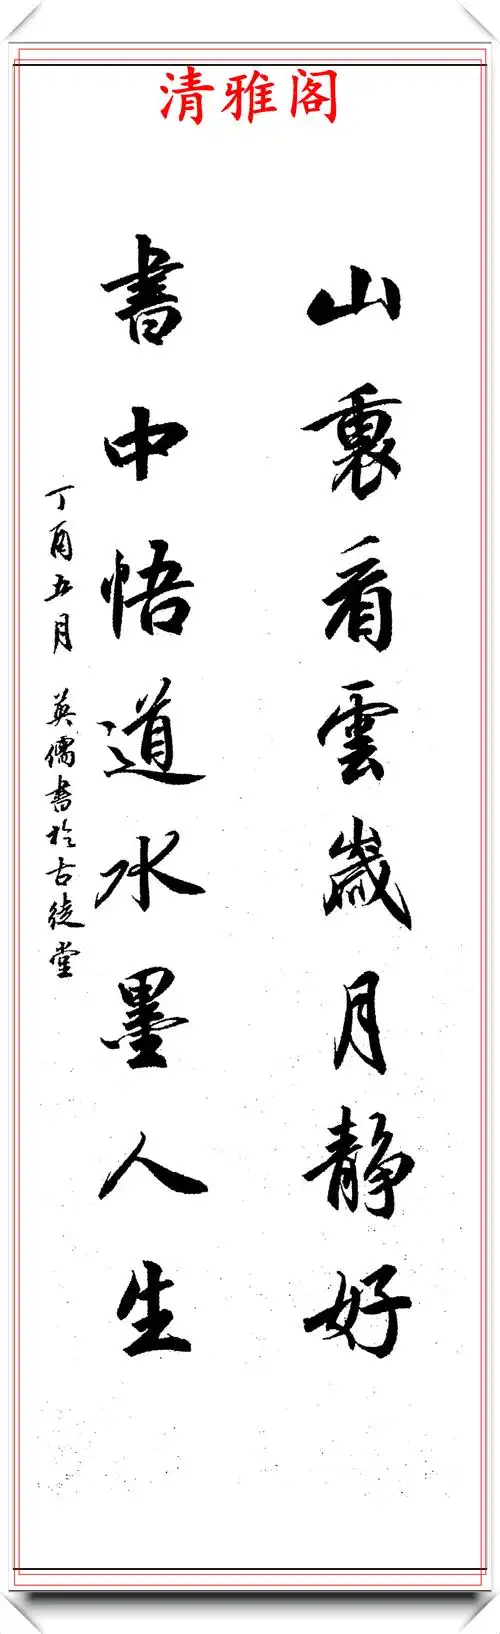 清雅阁
山裏看雲歲月静好
書中悟道水墨人生
丁酉五月 英儒書於古徒堂